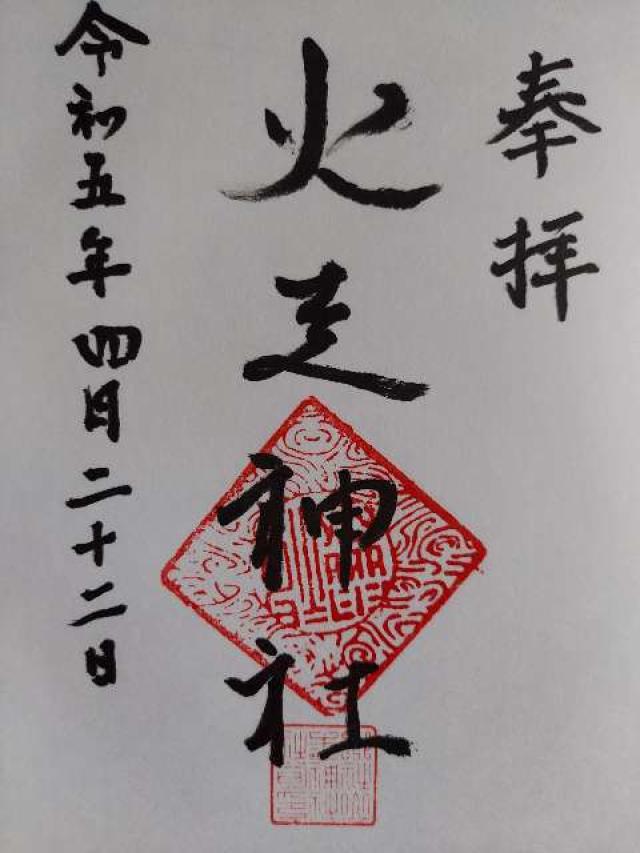 奉拝
火走神社
令和五年四日二十二日